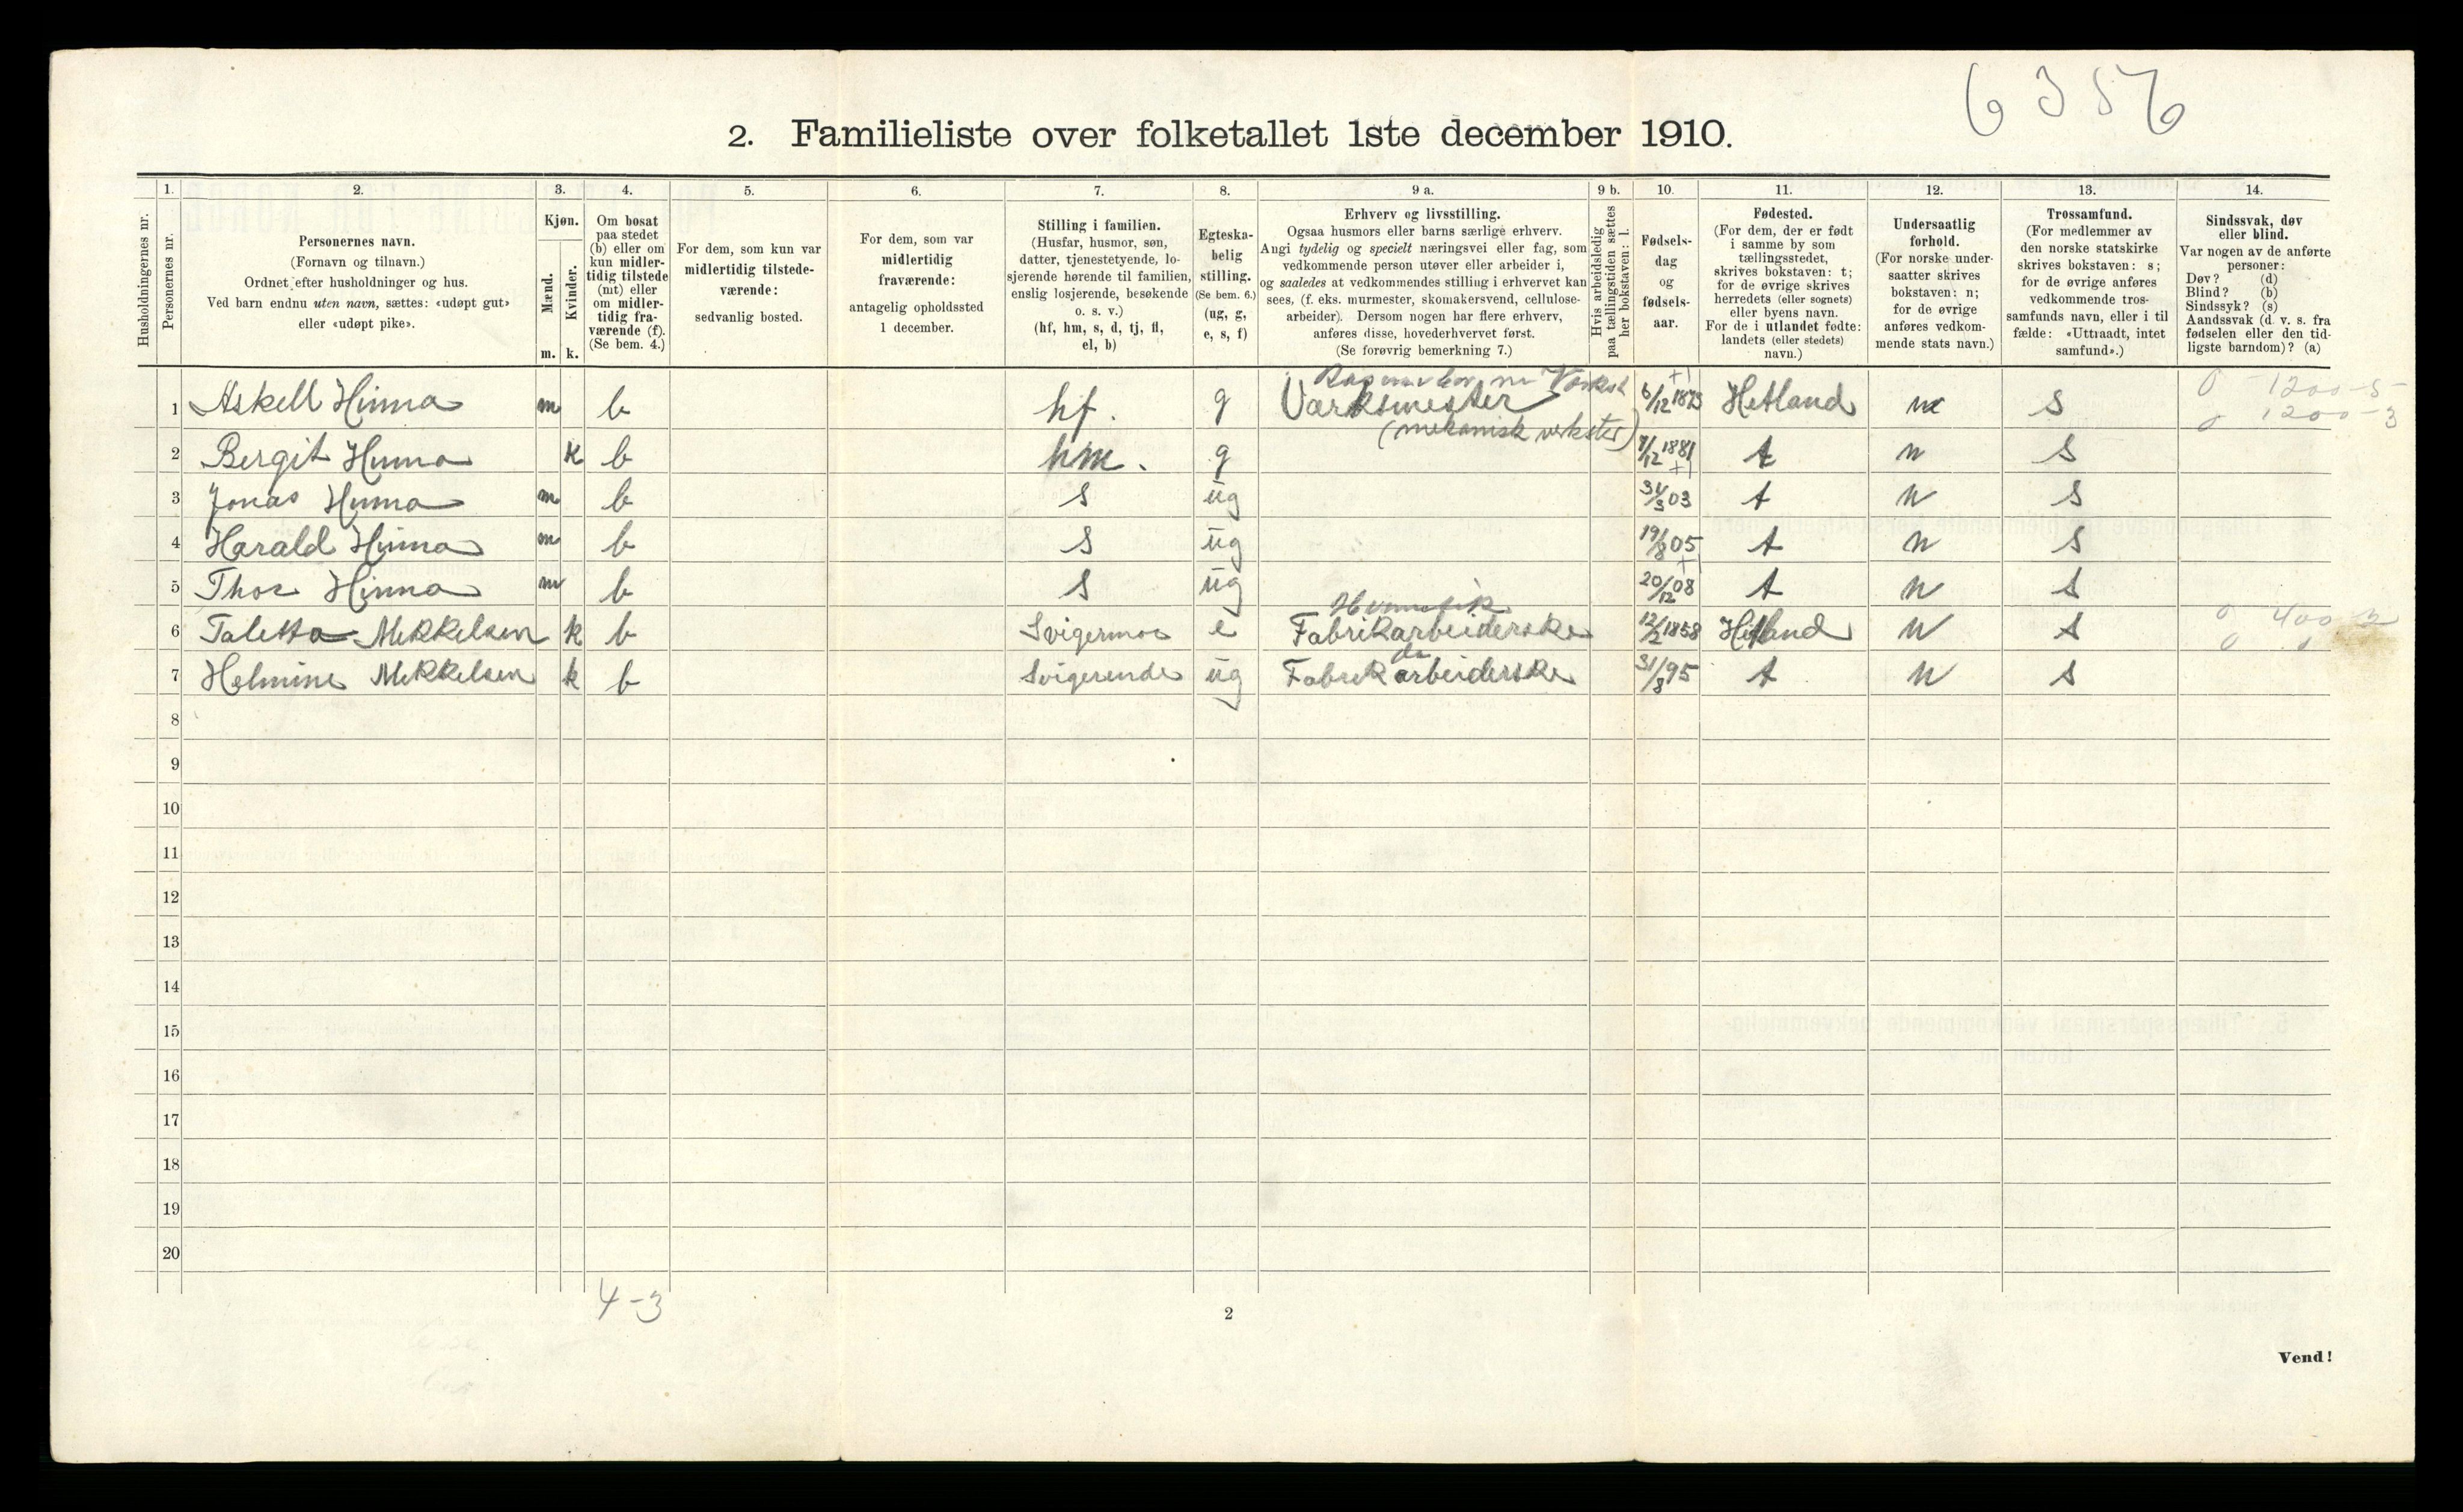 6356
2. Familieliste over folketallet 1ste december 1910.
1. 2. 3. 4. 5. 6. 7. 8. 9 a. 9 b. 10. 11. 12. 13. 14.
Husholdningernes nr.
Personernes nr.
Personernes navn.
(Fornavn og tilnavn.)
Ordnet efter husholdninger og hus.
Ved barn endnu uten navn, sættes: «udøpt gut»
eller «udøpt pike».
Kjøn.
Mænd.
Kvinder.
m. k.
Om bosat
paa stedet
(b) eller om
kun midler-
tidig tilstede
(mt) eller
om midler-
tidig fra-
værende (f).
(Se bem. 4.)
For dem, som kun var
midlertidig tilstede-
værende:
sedvanlig bosted.
For dem, som var
midlertidig
fraværende:
antagelig opholdssted
1 december.
Stilling i familien.
(Husfar, husmor, søn,
datter, tjenestetyende, lo-
sjerende hørende til familien,
enslig losjerende, besøkende
o. s. v.)
(hf, hm, s, d, tj, fl,
el, b)
Egteska-
belig
stilling.
(Se bem. 6.)
(ug, g,
e, s, f)
Erhverv og livsstilling.
Ogsaa husmors eller barns særlige erhverv.
Angi tydelig og specielt næringsvei eller fag, som
vedkommende person utøver eller arbeider i,
og saaledes at vedkommendes stilling i erhvervet kan
sees, (f. eks. murmester, skomakersvend, cellulose-
arbeider). Dersom nogen har flere erhverv,
anføres disse, hovederhvervet først.
(Se forøvrig bemerkning 7.)
Hvis arbeidsledig
paa tællingstiden sættes
her bokstaven: l.
Fødsels-
dag
og
fødsels-
aar.
Fødested.
(For dem, der er født
i samme by som
tællingsstedet,
skrives bokstaven: t;
for de øvrige skrives
herredets (eller sognets)
eller byens navn.
For de i utlandet fødte:
landets (eller stedets)
navn.)
Undersaatlig
forhold.
(For norske under-
saatter skrives
bokstaven: n;
for de øvrige
anføres vedkom-
mende stats navn.)
Trossamfund.
(For medlemmer av
den norske statskirke
skrives bokstaven: s;
for de øvrige anføres
vedkommende tros-
samfunds navn, eller i til-
fælde: «Uttraadt, intet
samfund».)
Sindssvak, døv
eller blind.
Var nogen av de anførte
personer:
Døv? (d)
Blind? (b)
Sindssyk? (s)
Aandssvak (d. v. s. fra
fødselen eller den tid-
ligste barndom)? (a)
1 Askell Hinna m b hf. g Værksmester 6/12 1873 Hetland n s
0 1200-5
0 1200-3
(mekanisk verksted)
2 Bergit Hinna k b hm. g 7/12 1881 t n s
3 Jonas Hinna m b s ug 31/3 03 t n s
4 Harald Hinna m b s ug 19/8 05 t n s
5 Thor Hinna m b s ug 20/12 08 t n s
6 Taletta Mikkelsen k b Svigermor e Fabrikarbeiderske 12/2 1858 Hetland n s
0 400-2
7 Helmine Mikkelsen k b ug Fabrikarbeiderske 31/8 95 t n s
do
8
9
10
11
12
13
14
15
16
17
18
19
20
4-3
2
Vend!